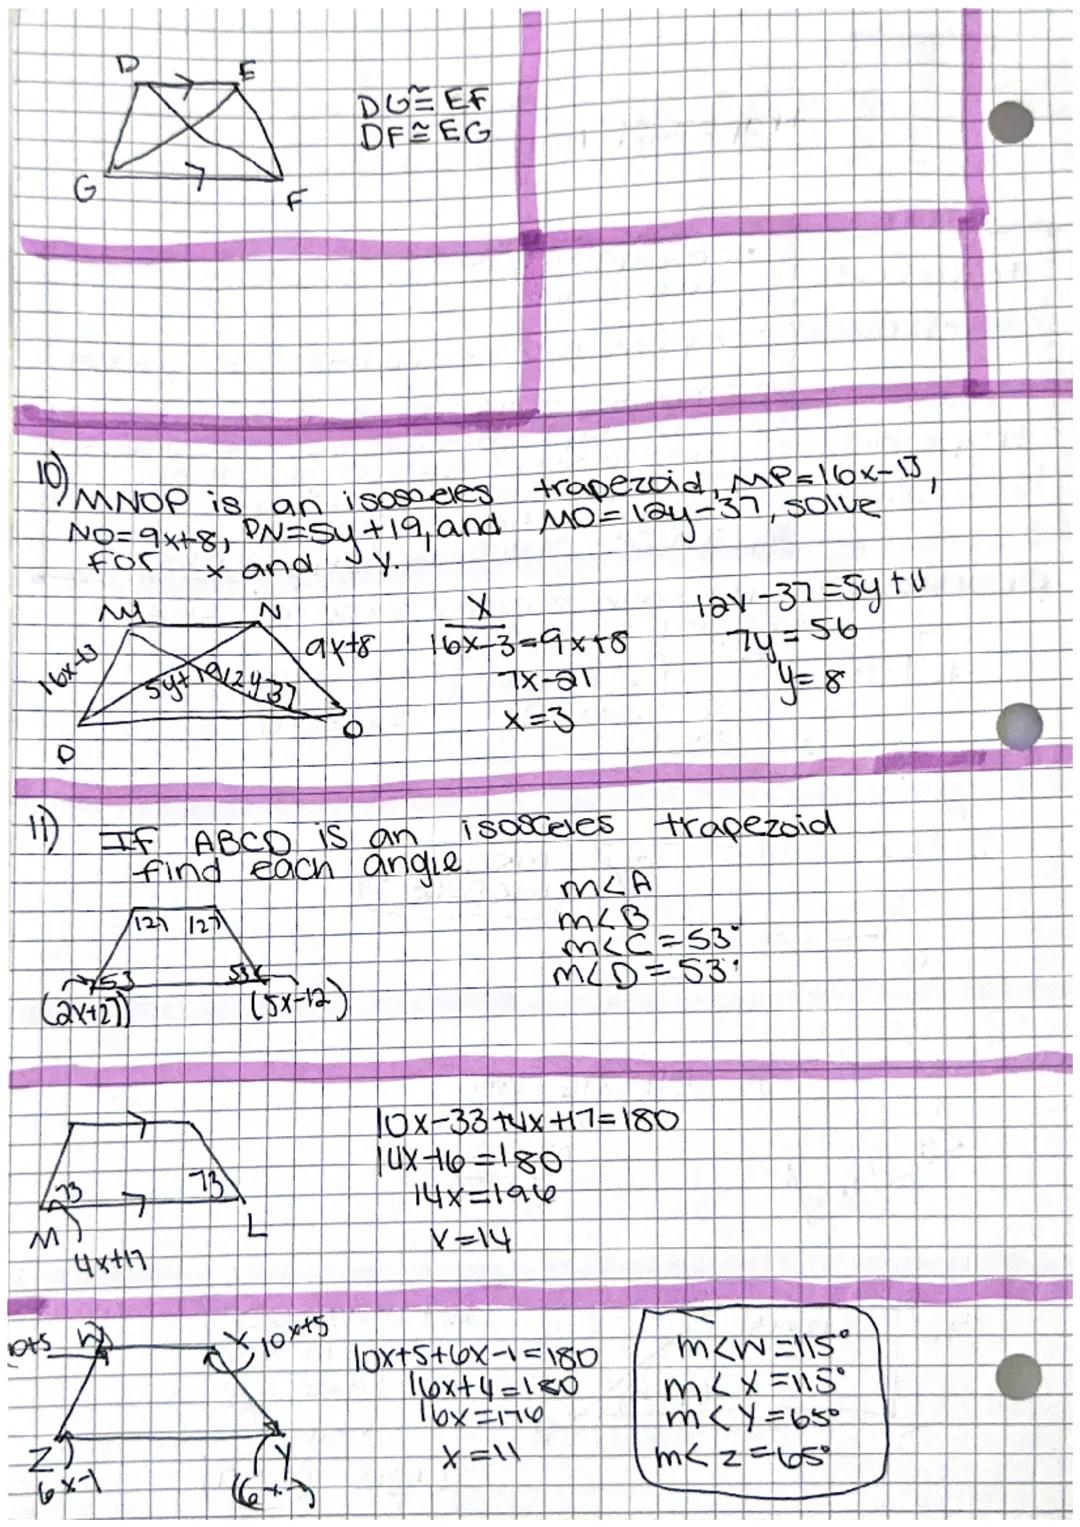 D E
DG≅EF
DF≅EG
G F
10) MNOP is an isosceles trapezoid, MP=16x-13,
NO=9x+8, PN=5y+19, and MO=12y-37, solve
for x and y.
M N
16x-13
9x+8
5y+19
12y-37
O
x
16x-3=9x+8
7x-21
x=3
7y=56
y=8
11) If ABCD is an isosceles trapezoid
find each angle
127 127
53 53
(5x-12)
m<A
m<B
m<C=53°
m<D=53°
73 73
M L
4x+17
10x-33+4x+17=180
14x-16=180
14x=196
x=14
W X 10x+5
Z Y
6x-1
10x+5+6x-1=180
16x+4=180
16x=176
x=11
m<W=115°
m<X=115°
m<Y=65°
m<Z=65°